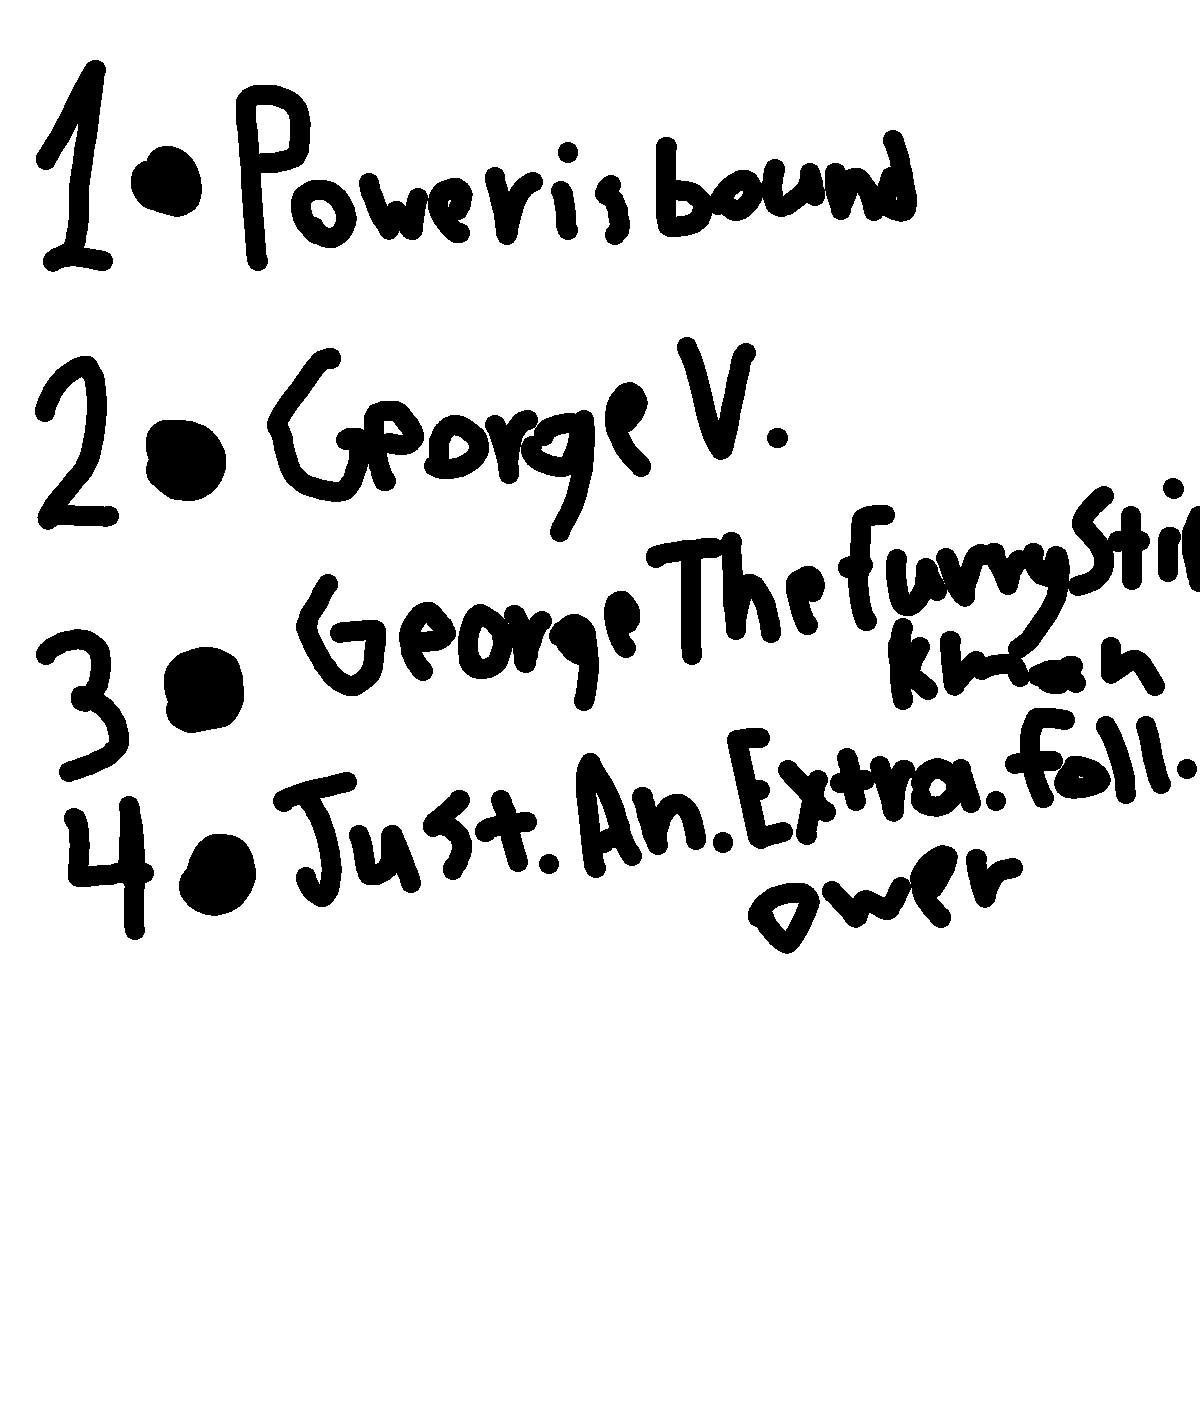 1. Powerisbound
2. George V.
3. George The furry Stic
kman
4. Just.An.Extra.foll.
ower